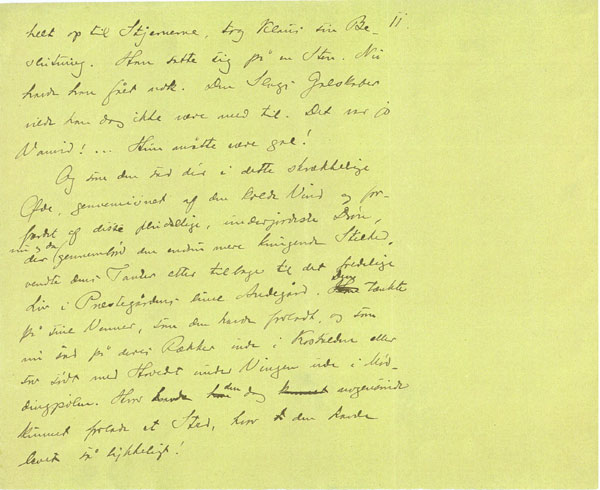 11
helt op til Stjernerne, tog Klaus sin Be-
slutning. Han satte sig på en Sten. Nu
havde han fået nok. Den Slags Galskaber
vilde han dog ikke være med til. Det var jo
Vanvid! ... Hun måtte være gal!
Og som den sad dér i dette skrækkelige
Øde, gennemisnet af den kolde Vind og for-
færdet af disse pludselige, underjordiske Drøn,
nu og da
der gennembrød den endnu mere knugende Stilhed,
vendte dens Tanker etter tilbage til det fredelige
Liv i Præstegårdens lune Andegård. Den tænkte
på sine Venner, som den havde forladt, og som
nu sad på deres Pække inde i Kostalden eller
sov sødt med Hovedet under Vingen ude i Mød-
dingpølen. Hvor havde han den dog kunnet nogensinde
kunnet forlade et Sted, hvor den havde
levet så lykkeligt!